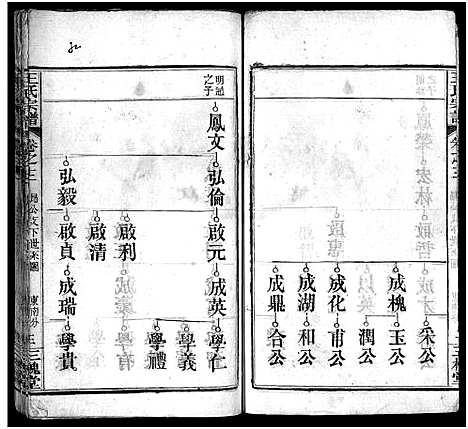 成槐
采公
玉公
潤公
成化
甫公
成湖
和公
成鼎
合公
明冠之子
鳳文
弘倫
弘毅
啟元
啟利
啟清
啟貞
成英
成瑞
學仁
學義
學禮
學貴
王氏宗譜
卷之三
公支下世系圖
東南分
三槐堂